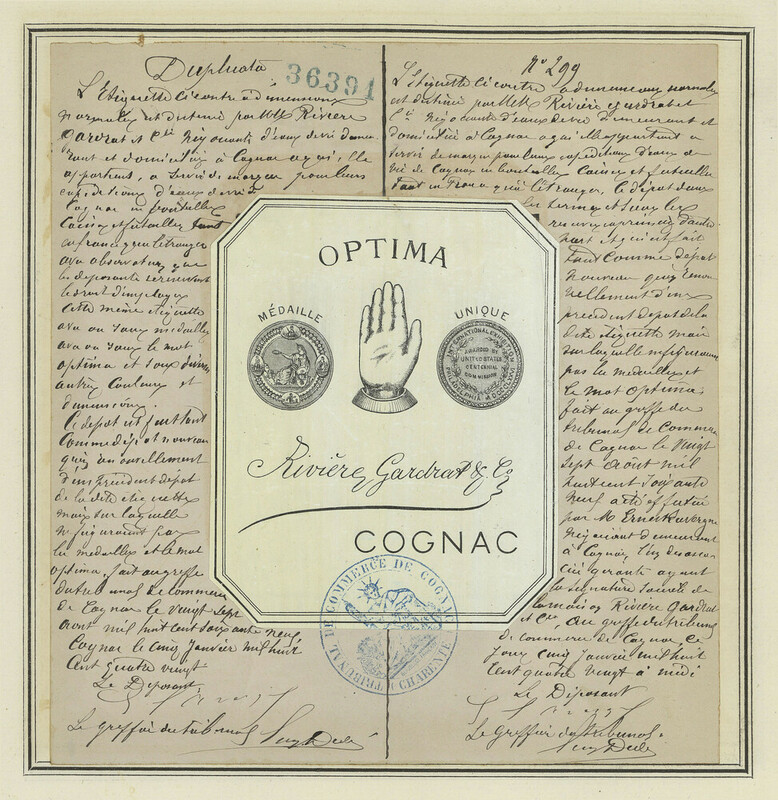 Duplicata
36391
L'Etiquette ci contre a dimensions
normales est destinée par MM Rivière
Gardrat et Cie Négociants d'eaux de vie demeu
rant et domiciliés à Cognac
apportent, à servir de marque pour leurs
expéditions d'eaux de vie de
Cognac en bouteilles
Caisses et futailles tant
en france qu'à l'étranger
que
les déposants se réservent
le droit d'employer
cette même étiquette
avec ou sans médailles
avec ou sans le mot
optima et sous
autres Couleurs et
dimensions.
Ce dépôt est fait tant
Comme dépôt nouveau
qu'en renouvellement
d'un précédent dépôt
de la dite étiquette
mais sur laquelle
ne figuraient pas
les médailles et le mot
optima, fait au greffe
du tribunal de commerce
de Cognac le vingt sept
Août mil huit cent soixante neuf,
Cognac le cinq Janvier mil huit
Cent quatre vingt
Le Déposant
Le greffier du tribunal
No 299
L'Etiquette ci contre a dimensions normales
est destinée par MM Rivière Gardrat et
Cie Négociants d'eaux de vie demeurant et
domiciliés à Cognac
servir de marque pour leurs expéditions d'eaux de
vie de Cognac en bouteilles Caisses et futailles
tant en France qu'à l'étranger, le dépôt dans
les termes et sous les
réserves exprimées d'autre
part et qui est fait
tant Comme dépôt
nouveau qu'en renou
vellement d'un
précédent dépôt de la
dite étiquette mais
sur laquelle ne figuraient
pas les médailles et
le mot Optima,
fait au greffe du
tribunal de Commerce
de Cognac le vingt
sept Août mil
huit cent soixante
neuf a été effectué
par M. Ernest
Négociant demeurant
à Cognac l'un des asso
ciés gérants ayant
la signature sociale de
la maison Rivière Gardrat
et Cie, Au greffe du tribunal
de commerce de Cognac, le
jour cinq Janvier mil huit
Cent quatre vingt à midi
Le Déposant
Le Greffier du tribunal
OPTIMA
MÉDAILLE
UNIQUE
INTERNATIONAL EXHIBITION
AWARDED BY
UNITED STATES
CENTENNIAL
COMMISSION
PHILADELPHIA MDCCCLXXVI
Rivière, Gardrat & Co
COGNAC
TRIBUNAL DE COMMERCE DE COGNAC
CHARENTE